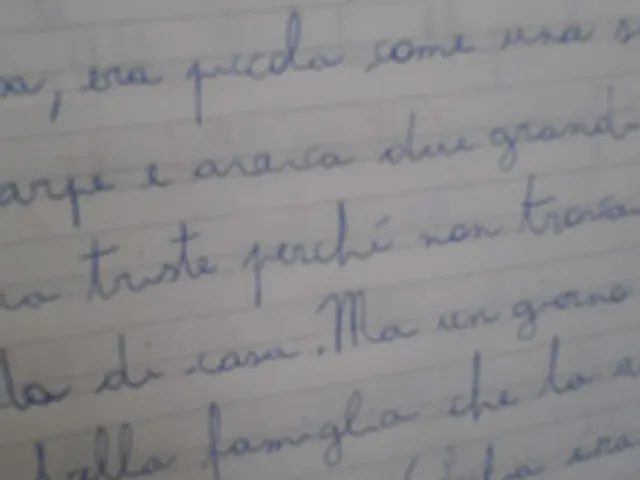 era piccola come una
arpe e aveva due grand
triste perché non trova
la di casa. Ma un giorno
famiglia che la
era